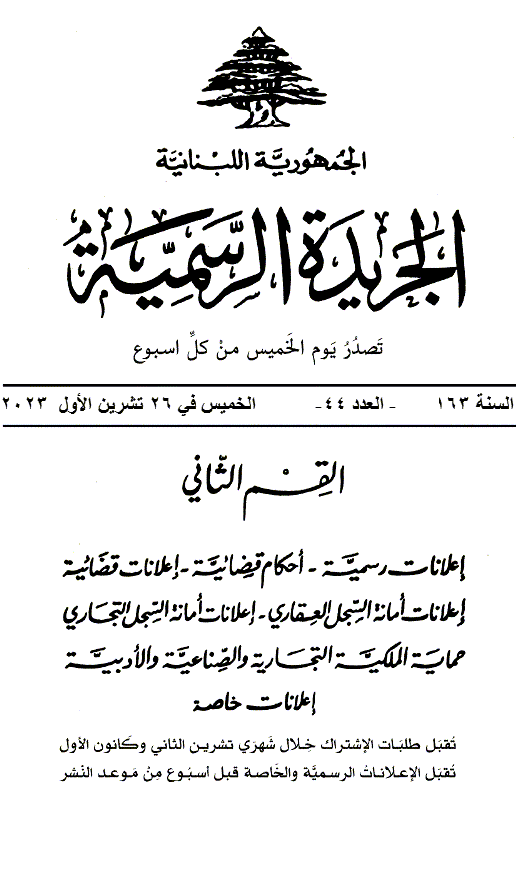 الجمهوريَّة اللبنانيَّة
الجريدة الرسميَّة
تَصدُرُ يَوم الخَميس منْ كلِّ اسبوع
السنة ١٦٣ - العدد ٤٤- الخميس في ٢٦ تشرين الأول ٢٠٢٣
القِسْم الثَّاني
إعلانات رسميَّة - أحكام قضائيَّة - إعلانات قضائية
إعلانات أمانة السِّجل العقاري - إعلانات أمانة السِّجل التجاري
حماية الملكيَّة التجارية والصِّناعيَّة والأدبيَّة
إعلانات خاصة
تُقبَل طلبَات الإشتراك خِلال شَهرَي تشرين الثاني وكَانون الأول
تُقبَل الإعلاناتُ الرسميَّة والخَاصة قبل أسبُوع مِنْ مَوعد النَشر